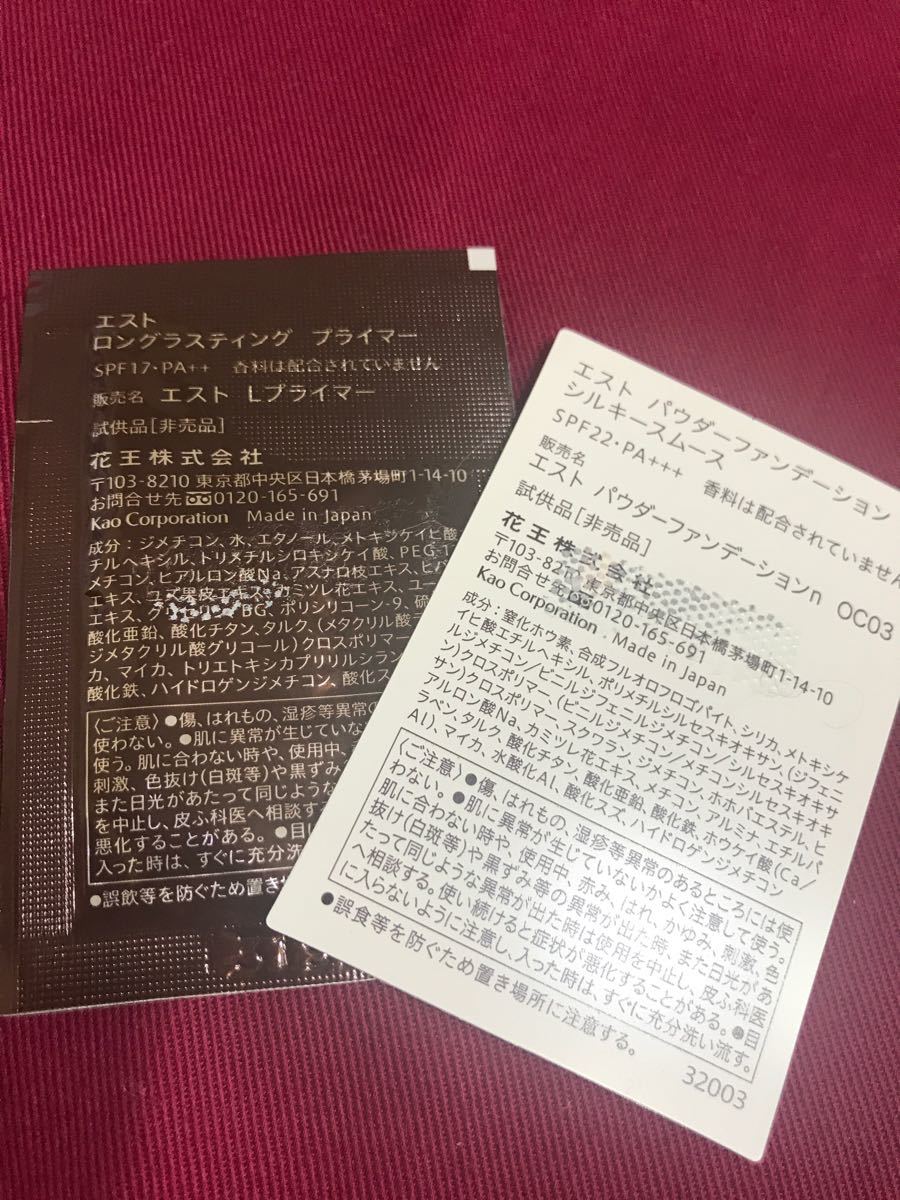 エスト
ロングラスティング プライマー
SPF17・PA++ 香料は配合されていません
販売名 エスト Lプライマー
試供品[非売品]
花王株式会社
〒103-8210 東京都中央区日本橋茅場町1-14-10
お問合せ先 0120-165-691
Kao Corporation Made in Japan
成分:ジメチコン、水、エタノール、メトキシケイヒ酸
チルヘキシル、トリメチルシロキシケイ酸、PEG-1
メチコン、ヒアルロン酸Na、アスナロ枝エキス、ヒバ
エキス、ユズ果皮エキス、カミツレ花エキス、ユー
エキス、BG、ポリシリコーン-9、硫
酸化亜鉛、酸化チタン、タルク、(メタクリル酸ラ
ジメタクリル酸グリコール)クロスポリマー
カ、マイカ、トリエトキシカプリリルシラン
酸化鉄、ハイドロゲンジメチコン、酸化ス
〈ご注意〉●傷、はれもの、湿疹等異常の
使わない。●肌に異常が生じていな
使う。肌に合わない時や、使用中、
刺激、色抜け(白斑等)や黒ずみ
また日光があたって同じような
を中止し、皮ふ科医へ相談する
悪化することがある。●目に
入った時は、すぐに充分洗い
●誤飲等を防ぐため置き
エスト パウダーファンデーション
シルキースムース
SPF22・PA+++ 香料は配合されていません
販売名
エスト パウダーファンデーションn OC03
試供品[非売品]
花王株式会社
〒103-8210 東京都中央区日本橋茅場町1-14-10
お問合せ先 0120-165-691
Kao Corporation Made in Japan
成分:窒化ホウ素、合成フルオロフロゴパイト、シリカ、メトキシケ
イヒ酸エチルヘキシル、ポリメチルシルセスキオキサン、(ジフェニ
ルジメチコン/ビニルジフェニルジメチコン/シルセスキオキサ
ン)クロスポリマー、(ビニルジメチコン/メチコンシルセスキオキ
サン)クロスポリマー、スクワラン、ジメチコン、ホホバエステル、ヒ
アルロン酸Na、カミツレ花エキス、メチコン、アルミナ、エチルパ
ラベン、タルク、酸化チタン、酸化亜鉛、酸化鉄、ホウケイ酸(Ca/
Al)、マイカ、水酸化Al、酸化スズ、ハイドロゲンジメチコン
〈ご注意〉●傷、はれもの、湿疹等異常のあるところには使
わない。●肌に異常が生じていないかよく注意して使う。
肌に合わない時や、使用中、赤み、はれ、かゆみ、刺激、色
抜け(白斑等)や黒ずみ等の異常が出た時、また日光があ
たって同じような異常が出た時は使用を中止し、皮ふ科医
へ相談する。使い続けると症状が悪化することがある。●目
に入らないように注意し、入った時は、すぐに充分洗い流す。
●誤食等を防ぐため置き場所に注意する。
32003